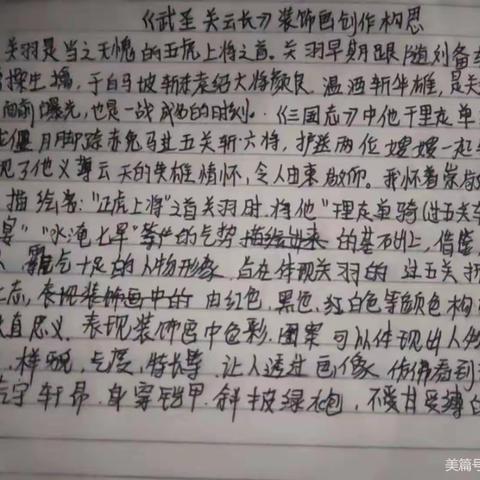 《武圣关云长》装饰画创作构思
关羽是当之无愧的五虎上将之首。关羽早期跟随刘备
曹操生擒,于白马坡斩袁绍大将颜良。温酒斩华雄,是关
面前曝光,也是一战成名的时刻。《三国志》中他千里走单
偃月脚踪赤兔马过五关斩六将,护送两位嫂嫂一起
现了他义薄云天的英雄情怀,令人由衷敬仰。我怀着崇敬
描绘着:"五虎上将"之首关羽时.将他"理走单骑(过五关
宴""水淹七军"等的气势 的基础上,借鉴
霸气十足的人物形象.旨在体现关羽的过五关折
志,表现装饰画中的由红色,黑色,红白色等颜色构
真思义.表现装饰画中色彩.图案可以体现出人物
样貌,气度,特长等.让人透过画像仿佛看到
气宇轩昂.身穿铠甲.斜披绿袍,不受甘受缚的
美篇号